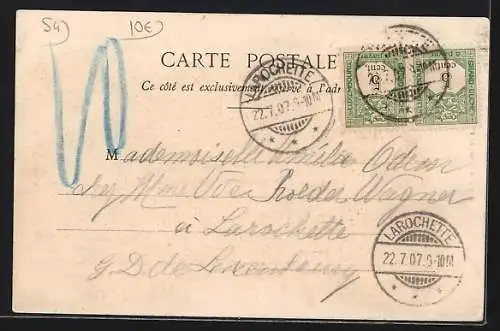 54 10€
CARTE POSTALE
Ce côté est exclusivement réservé à l'adr
LAROCHETTE
22.7.07.9-10M
5 cent
5
Mademoiselle Amélie Odem
chez Mme Vve Roeder Wagner
à Larochette
G. D. de Luxembourg
LAROCHETTE
22.7.07.9-10M